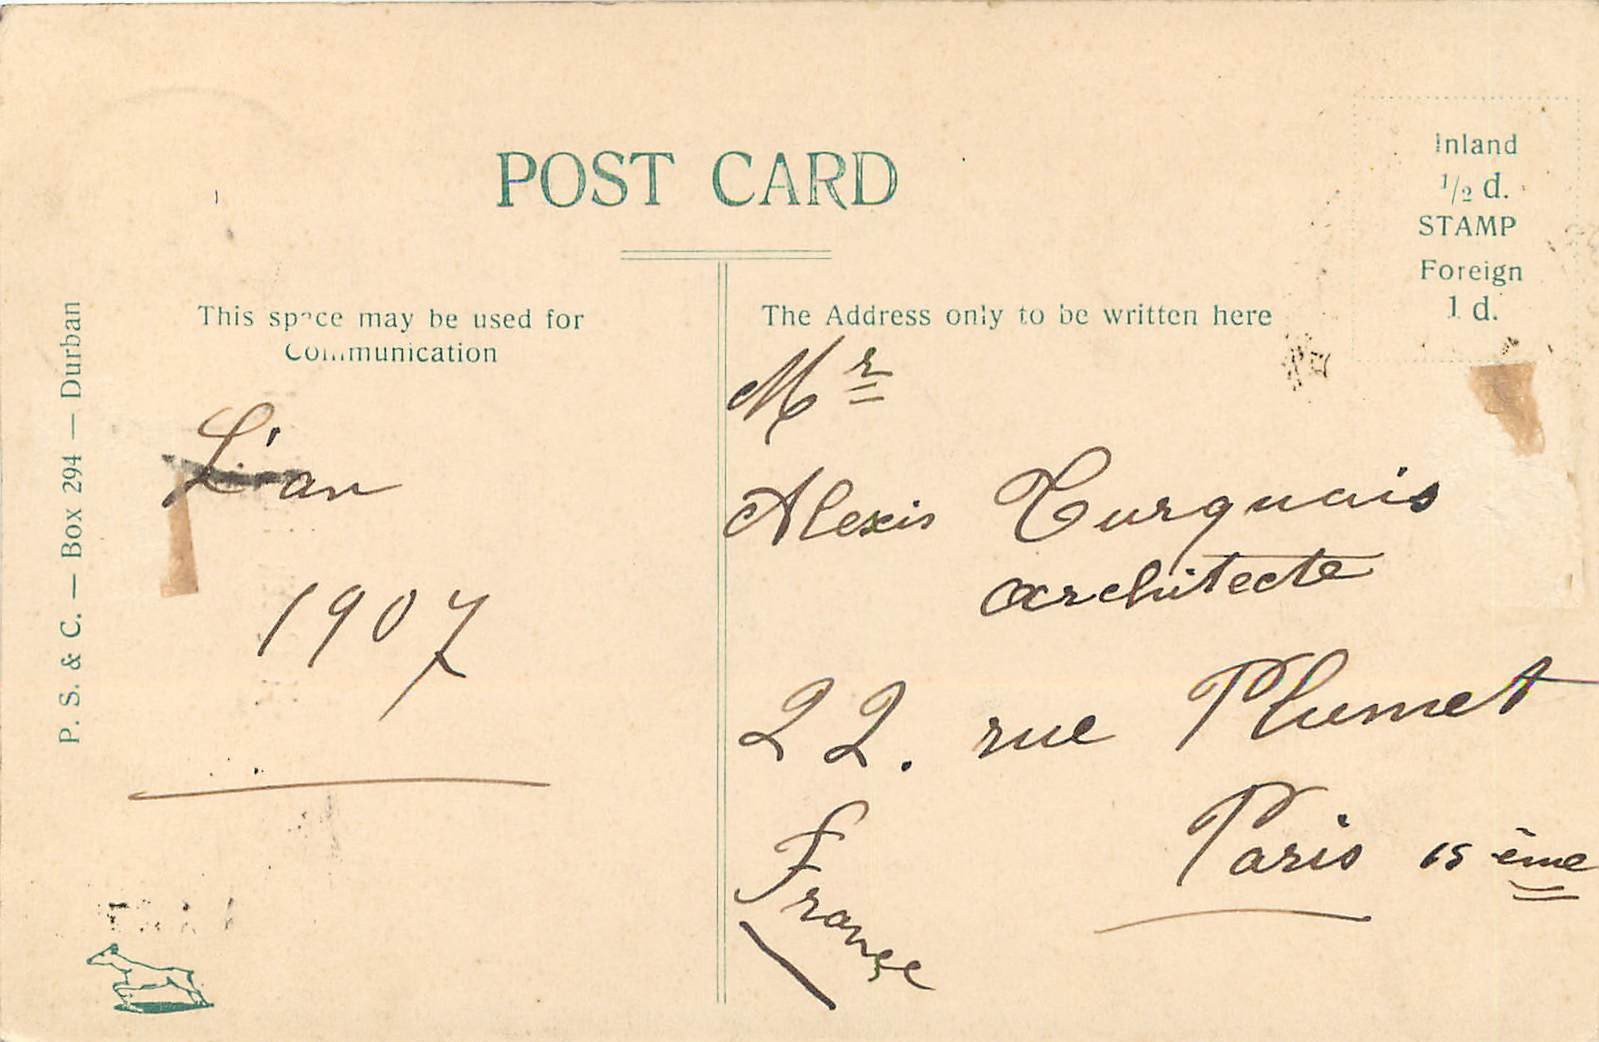 POST CARD
Inland
1/2 d.
STAMP
Foreign
1 d.
P. S. & C. — Box 294 — Durban
This space may be used for
Communication
L'an
1907
The Address only to be written here
Mr
Alexis Turquais
architecte
22. rue Plumet
Paris 15 ème
France